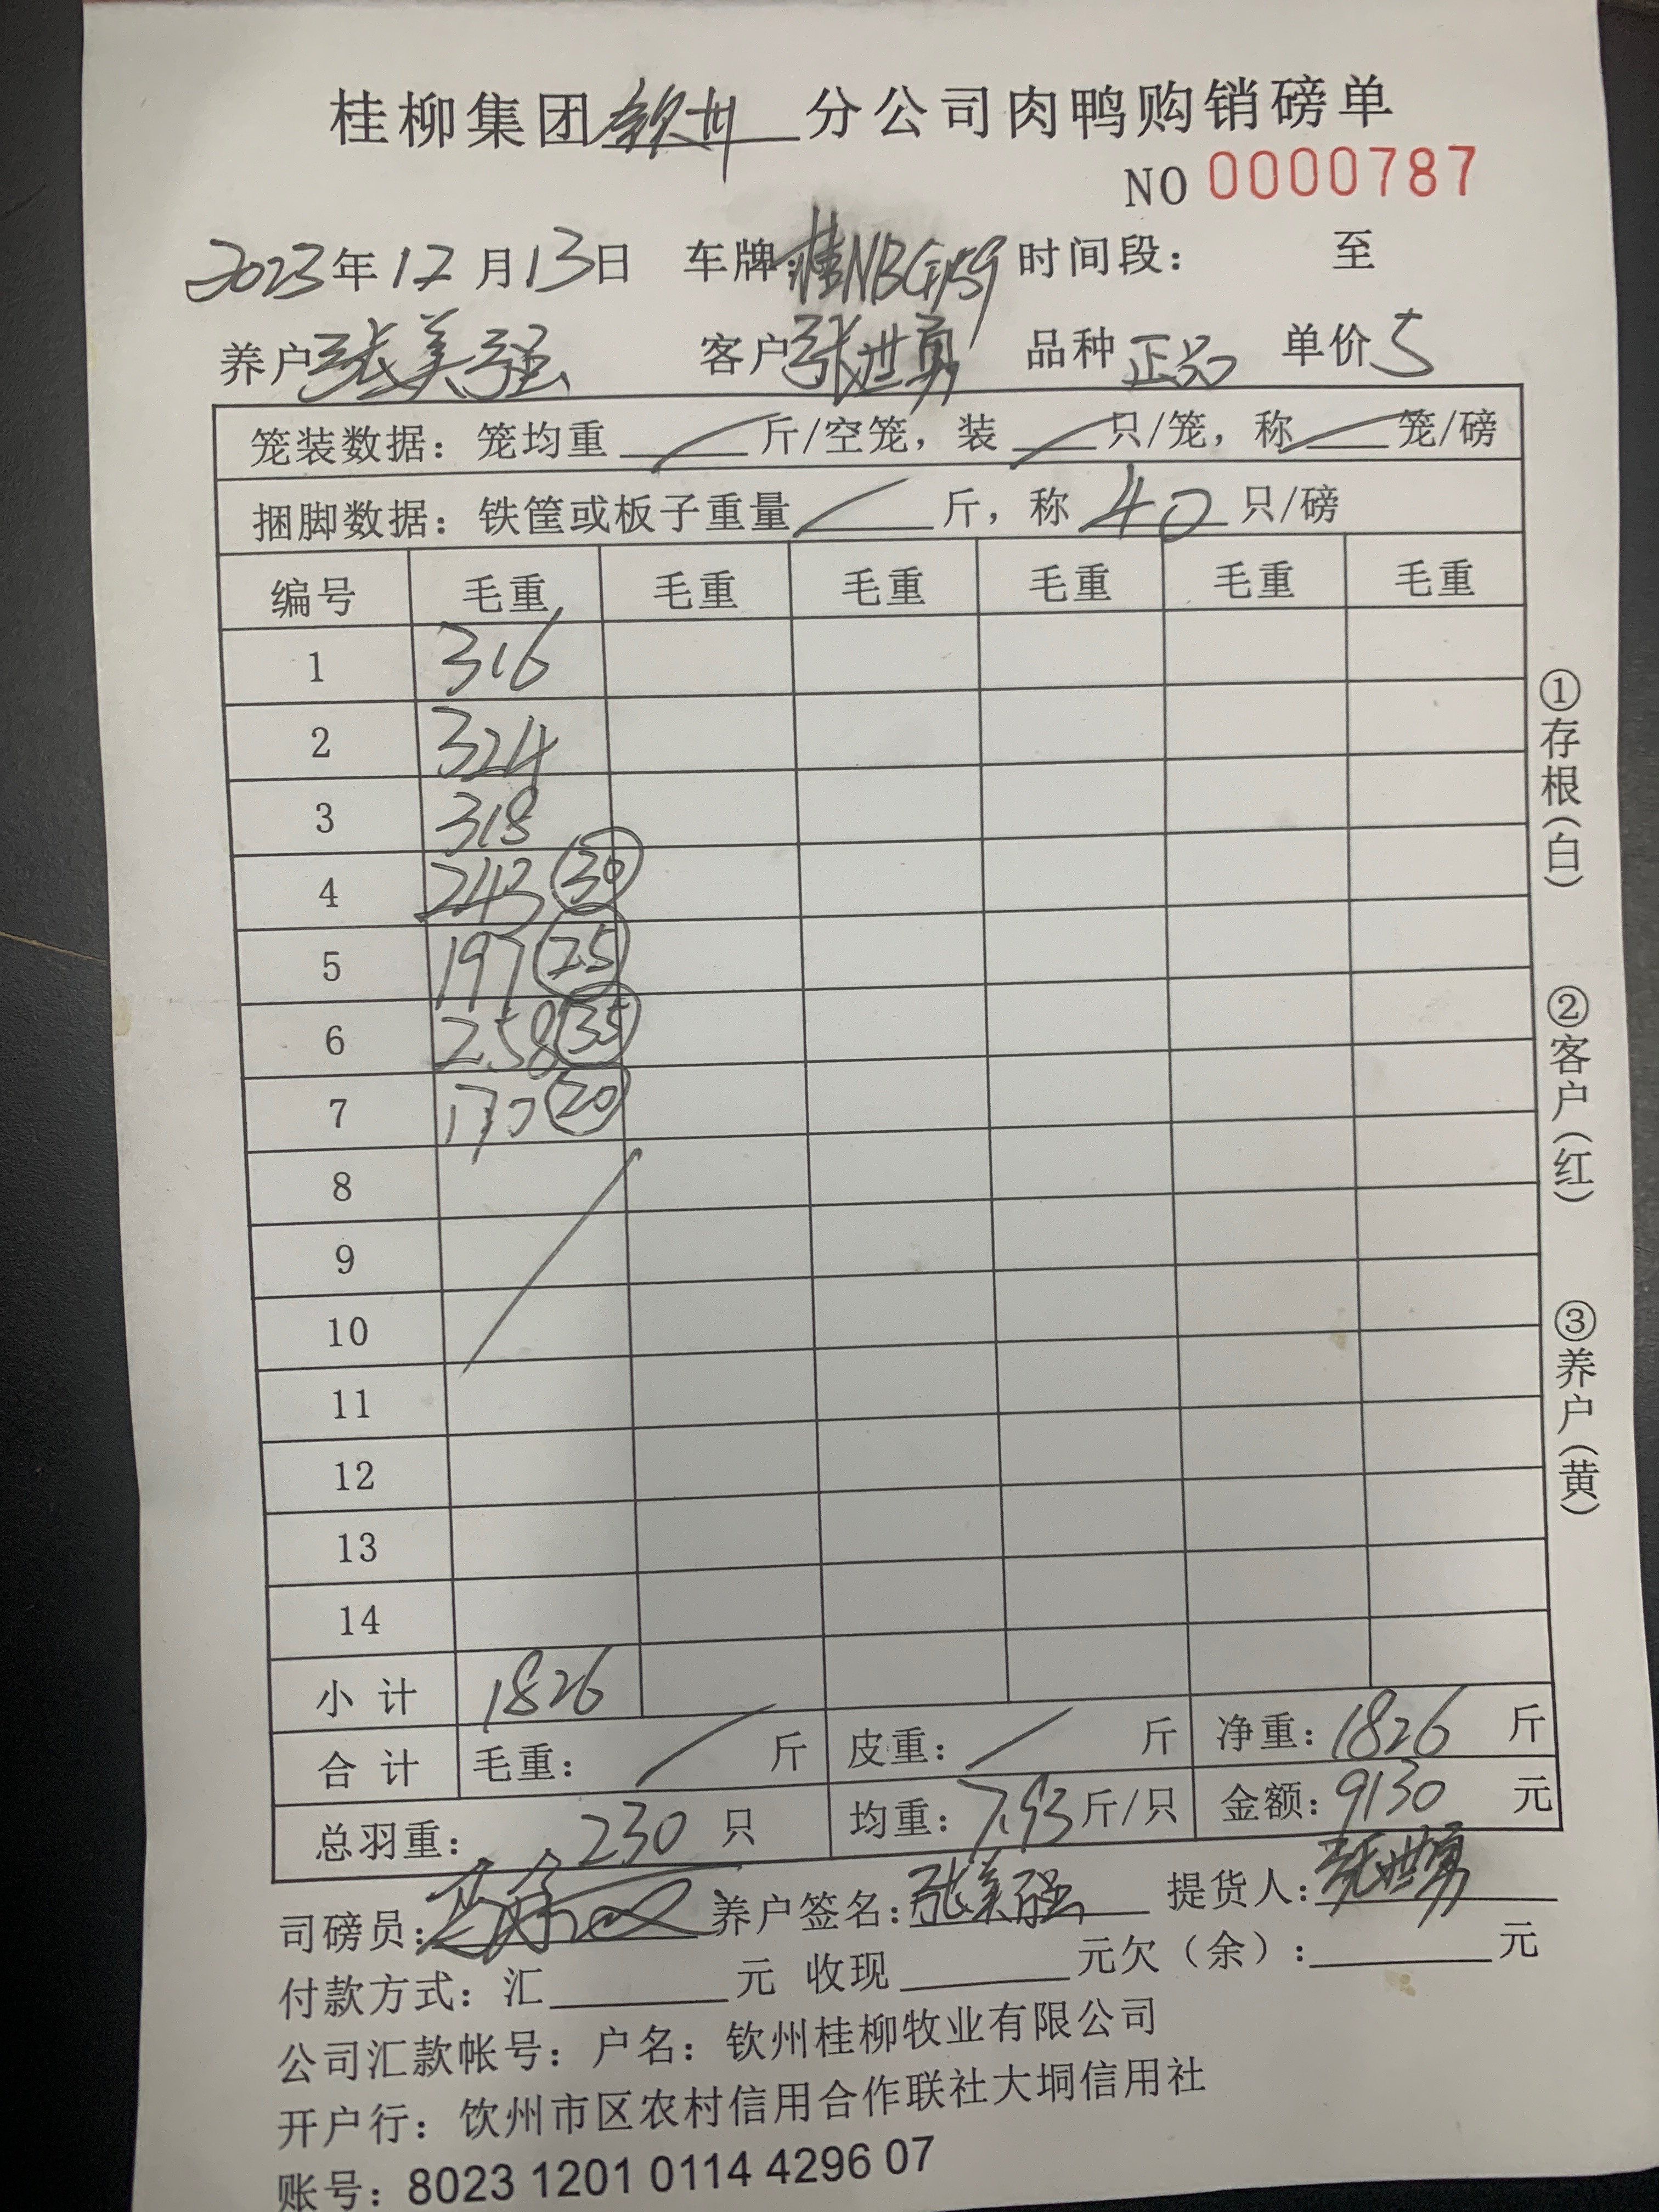 桂柳集团钦州分公司肉鸭购销磅单
NO 0000787
2023年12月13日 车牌:桂NBG159 时间段: 至
养户张美强 客户张世勇 品种正品 单价5
笼装数据: 笼均重 斤/空笼, 装 只/笼, 称 笼/磅
捆脚数据: 铁筐或板子重量 斤, 称 40 只/磅
编号 毛重 毛重 毛重 毛重 毛重 毛重
1 316
2 324
3 318
4 243 30
5 197 25
6 258 35
7 170 20
8
9
10
11
12
13
14
小计 1826
合计 毛重: 斤 皮重: 斤 净重: 1826 斤
总羽重: 230 只 均重: 7.93 斤/只 金额: 9130 元
司磅员: 养户签名: 张美强 提货人: 张世勇
付款方式: 汇 元 收现 元欠(余): 元
公司汇款帐号: 户名: 钦州桂柳牧业有限公司
开户行: 钦州市区农村信用合作联社大垌信用社
账号: 8023 1201 0114 4296 07
①存根(白)
②客户(红)
③养户(黄)